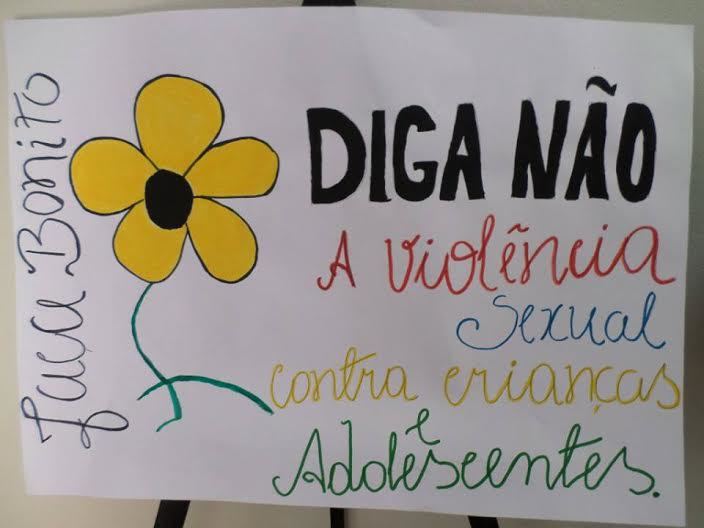 Faça Bonito
DIGA NÃO
A Violência
Sexual
contra crianças
e
Adolescentes.